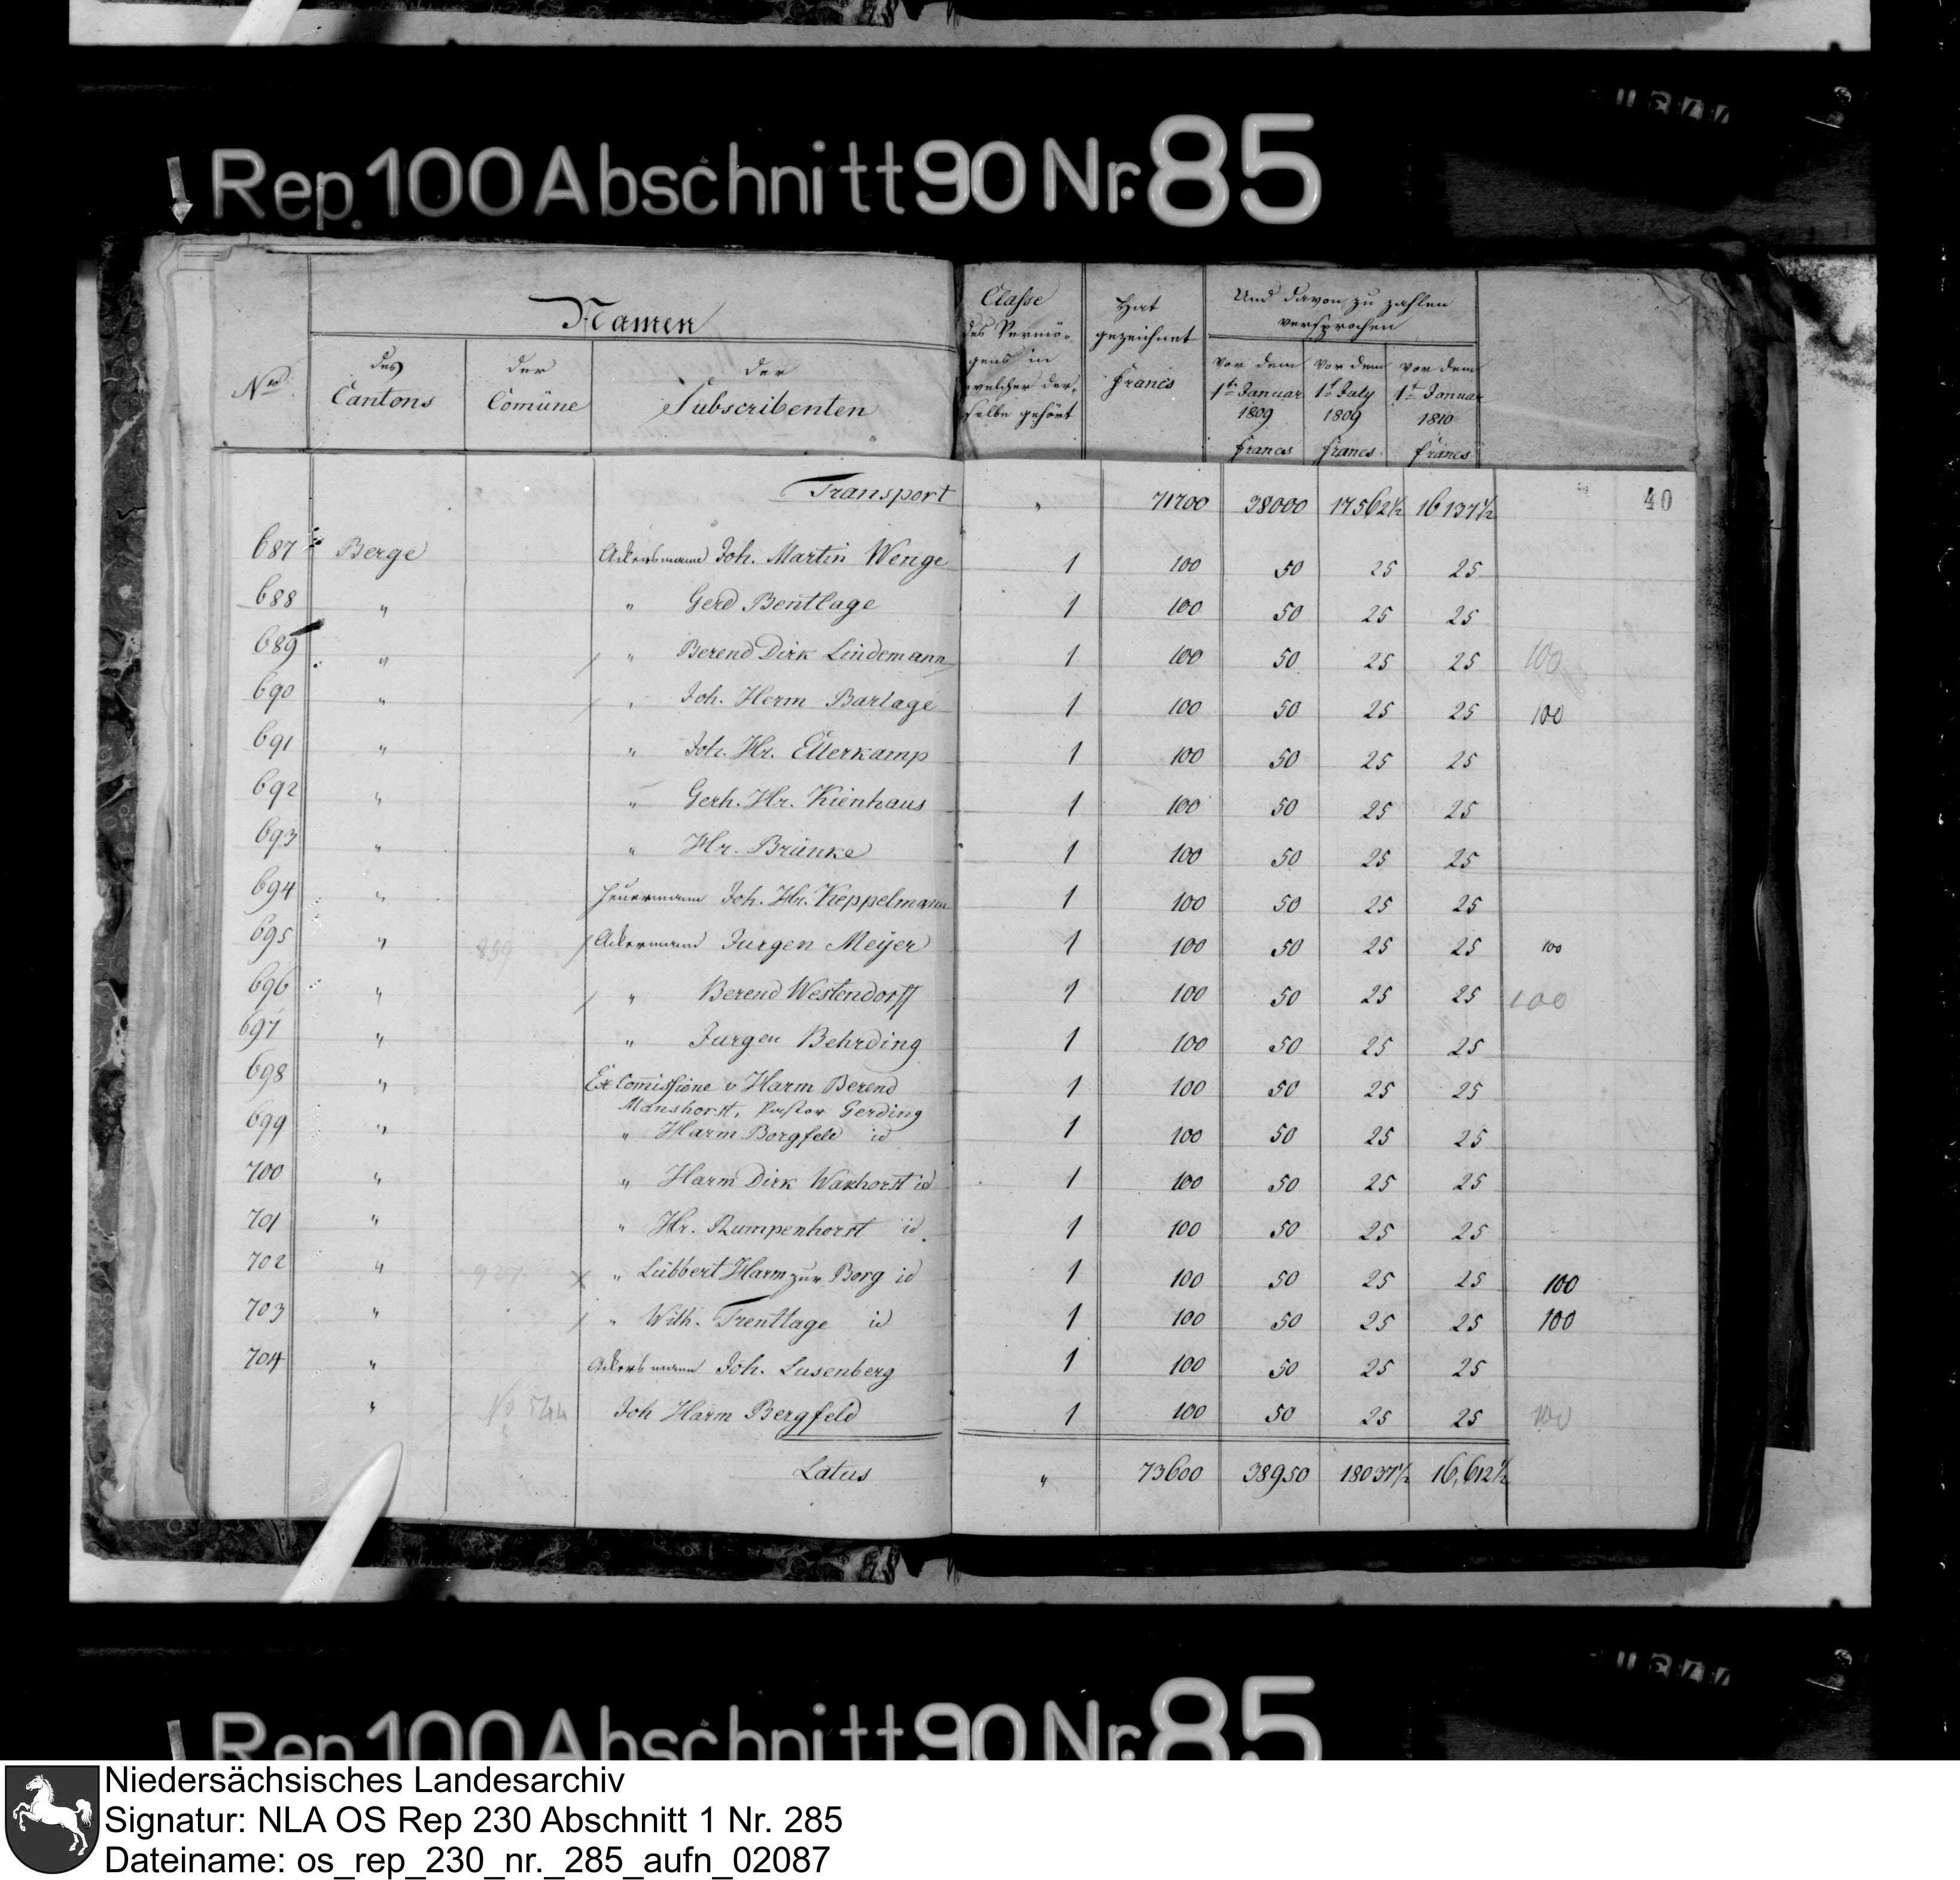 Rep. 100 Abschnitt 90 Nr. 85
Namen
No.
des Cantons
der Comüne
der Subscribenten
Classe des Vermögens in welcher derselbe gehört
Hat gezeichnet Francs
Und davon zu zahlen versprochen
vor dem 1t Januar 1809 Francs
vor dem 1t July 1809 Francs
vor dem 1t Januar 1810 Francs
40
Transport " 71700 38000 17562½ 16137½
687 Berge Ackersmann Joh. Martin Wenge 1 100 50 25 25
688 " " Gerd Bentlage 1 100 50 25 25
689 " " Berend Dirk Lindemann 1 100 50 25 25 100
690 " " Joh. Herm Barlage 1 100 50 25 25 100
691 " " Joh. Hr. Ellerkamp 1 100 50 25 25
692 " " Gerh. Hr. Kienhaus 1 100 50 25 25
693 " " Hr. Brünke 1 100 50 25 25
694 " Heuermann Joh. Hr. Keppelmann 1 100 50 25 25
695 " Ackermann Jurgen Meÿer 1 100 50 25 25 100
696 " " Berend Westendorff 1 100 50 25 25 100
697 " " Jurgen Behrding 1 100 50 25 25
698 " Ex Com̅issione v Harm Berend 1 100 50 25 25
Manshorst, Pastor Gerding
699 " " Harm Borgfeld id 1 100 50 25 25
700 " " Harm Dirk Wakhorst id 1 100 50 25 25
701 " " Hr. Rumpenhorst id. 1 100 50 25 25
702 " 927 x " Lübbert Harm zur Borg id 1 100 50 25 25 100
703 " " Wilh. Trentlage id 1 100 50 25 25 100
704 " Ackersmann Joh. Lusenberg 1 100 50 25 25
" No 544 Joh Harm Bergfeld 1 100 50 25 25 100
Latus " 73600 38950 18037½ 16,612½
Rep. 100 Abschnitt 90 Nr. 85
Niedersächsisches Landesarchiv
Signatur: NLA OS Rep 230 Abschnitt 1 Nr. 285
Dateiname: os_rep_230_nr._285_aufn_02087